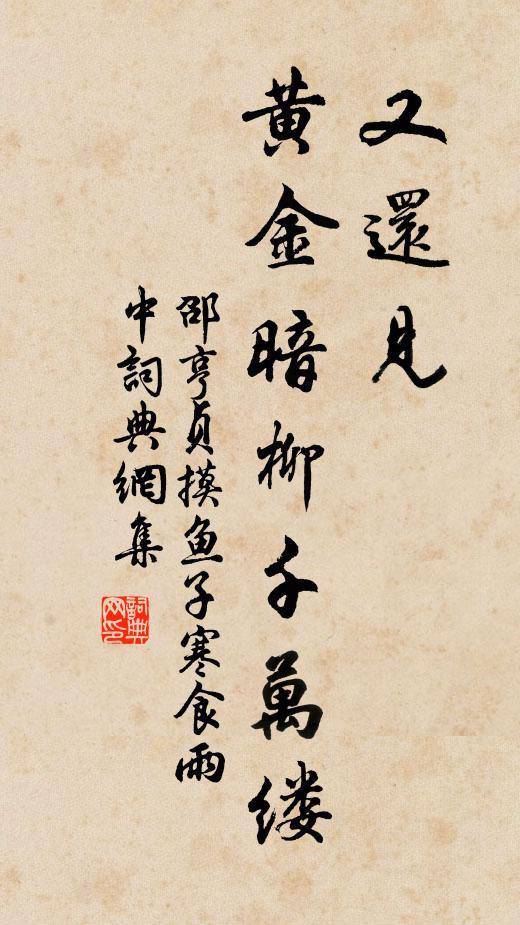 又還見
黃金暗柳千萬缕
邵亨貞摸鱼子寒食雨
中詞典網集
詞典网印